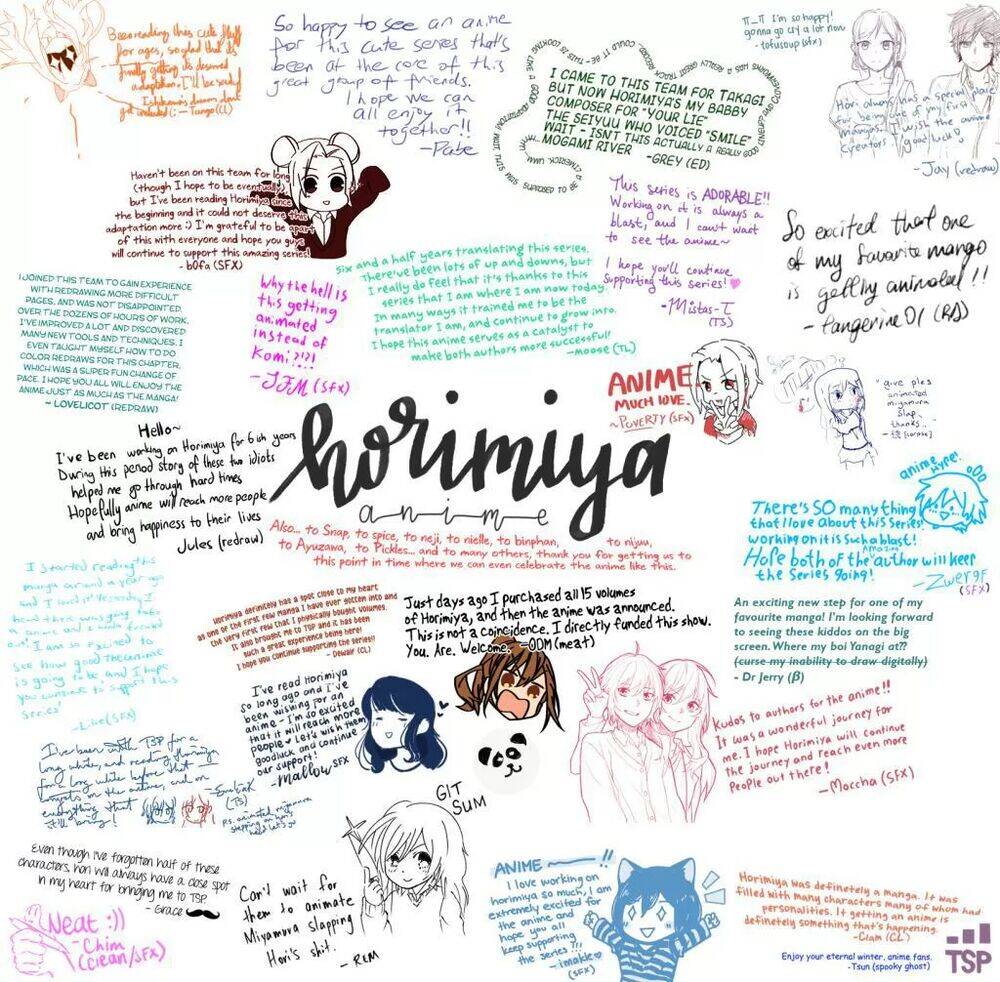 Been reading this cute fluff
for ages, so glad that it's
finally getting its deserved
adaptation. I'll be sad if
Ishikawa's dream don't
get included (; - Tango (CL)
So happy to see an anime
for this cute series that's
been at the core of this
great group of friends.
I hope we can
all enjoy it
together!!
- Pabe
I CAME TO THIS TEAM FOR TAKAGI
BUT NOW HORIMIYA'S MY BABBY
COMPOSER FOR "YOUR LIE"
THE SEIYUU WHO VOICED "SMILE"
WAIT - ISN'T THIS ACTUALLY A REALLY GOOD
MOGAMI RIVER -GREY (ED)
π_π I'm so happy!
gonna go cry a lot now
- tofusoup (sfx)
Hori always has a special place
for being one of my first
mangas. I wish the anime
creators good luck
- Jay (redraw)
Haven't been on this team for long
(though I hope to be eventually)
but I've been reading Horimiya since
the beginning and it could not deserve this
adaptation more :) I'm grateful to be apart
of this with everyone and hope you guys
will continue to support this amazing series!
- b0fa (SFX)
This series is ADORABLE!!
Working on it is always a
blast, and I can't wait
to see the anime~
I hope you'll continue
supporting this series!
- Mistas-T
(TS)
So excited that one
of my favourite manga
is getting animated!!
- tangerine01 (RD)
I JOINED THIS TEAM TO GAIN EXPERIENCE
WITH REDRAWING MORE DIFFICULT
PAGES, AND WAS NOT DISAPPOINTED.
OVER THE DOZENS OF HOURS OF WORK,
I'VE IMPROVED A LOT AND DISCOVERED
MANY NEW TOOLS AND TECHNIQUES. I
EVEN TAUGHT MYSELF HOW TO DO
COLOR REDRAWS FOR THIS CHAPTER,
WHICH WAS A SUPER FUN CHANGE OF
PACE. I HOPE YOU ALL WILL ENJOY THE
ANIME JUST AS MUCH AS THE MANGA!
~ LOVELICOT (REDRAW)
Why the hell is
this getting
animated
instead of
Komi?!?!
- JFM (SFX)
Six and a half years translating this series.
There've been lots of up and downs, but
I really do feel that it's thanks to this
series that I am where I am now today.
In many ways it trained me to be the
translator I am, and continue to grow into.
I hope this anime serves as a catalyst to
make both authors more successful!
-moose (TL)
ANIME
MUCH LOVE.
~POVERTY (SFX)
give ples
animated
miyamura
slap.
thanks..
Hello~
I've been working on Horimiya for 6ish years
During this period story of these two idiots
helped me go through hard times
Hopefully anime will reach more people
and bring happiness to their lives
Jules (redraw)
horimiya
anime
Also... to Snap, to spice, to neji, to nielle, to binphan, to nijuu,
to Ayuzawa, to Pickles... and to many others, thank you for getting us to
this point in time where we can even celebrate the anime like this.
anime hype! oOo
There's SO many thing
that I love about this Series!
working on it is such a blast!
Hope both of the Amazing author will keep
the Series going!
- Zwergf
(SFX)
I started reading this
manga around a year ago
and I loved it. Yesterday I
heard there was going to be
a anime and I
I am so excited to
see how good the anime
is going to be and I hope
you continue to support this
series!
-Like (SFX)
Horimiya definitely has a spot close to my heart
as one of the first few manga I have ever gotten into and
the very first row that I physically bought volumes.
It also brought me to TSP and it has been
such a great experience being here!
I hope you continue supporting the series!!
- Dewair (CL)
Just days ago I purchased all 15 volumes
of Horimiya, and then the anime was announced.
This is not a coincidence. I directly funded this show.
You. Are. Welcome. -ODM (meat)
An exciting new step for one of my
favourite manga! I'm looking forward
to seeing these kiddos on the big
screen. Where my boi Yanagi at??
(curse my inability to draw digitally)
- Dr Jerry (β)
I've read Horimiya
so long ago and I've
been wishing for an
anime - I'm so excited
that it will reach more
people ♥ Let's wish them
goodluck and continue
our support!
-Mallow SFX
Kudos to authors for the anime!!
It was a wonderful journey for
me. I hope Horimiya will continue
the journey and reach even more
People out there!
- Moccha (SFX)
I've been with TSP for a
long while, and reading Horimiya
for a long while before that -
everything that
still being!
(TS)
p.s. animated miyamura
stepping on hori
let's go
GIT
SUM
Even though I've forgotten half of these
characters, hori will always have a close spot
in my heart for bringing me to TSP.
- Grace
Neat :))
- Chim
(Clean/SFX)
Can't wait for
them to animate
Miyamura slapping
Hori's shit.
- RLM
ANIME !!
I love working on
horimiya so much, I am
extremely excited for
the anime and
hope you all
keep supporting
the series!!!
- imakie
(SFX)
Horimiya was definetely a manga. It was
filled with many characters many of whom had
personalities. It getting an anime is
definetely something that's happening.
-Clam (CL)
Enjoy your eternal winter, anime fans.
-Tsun (spooky ghost)
TSP